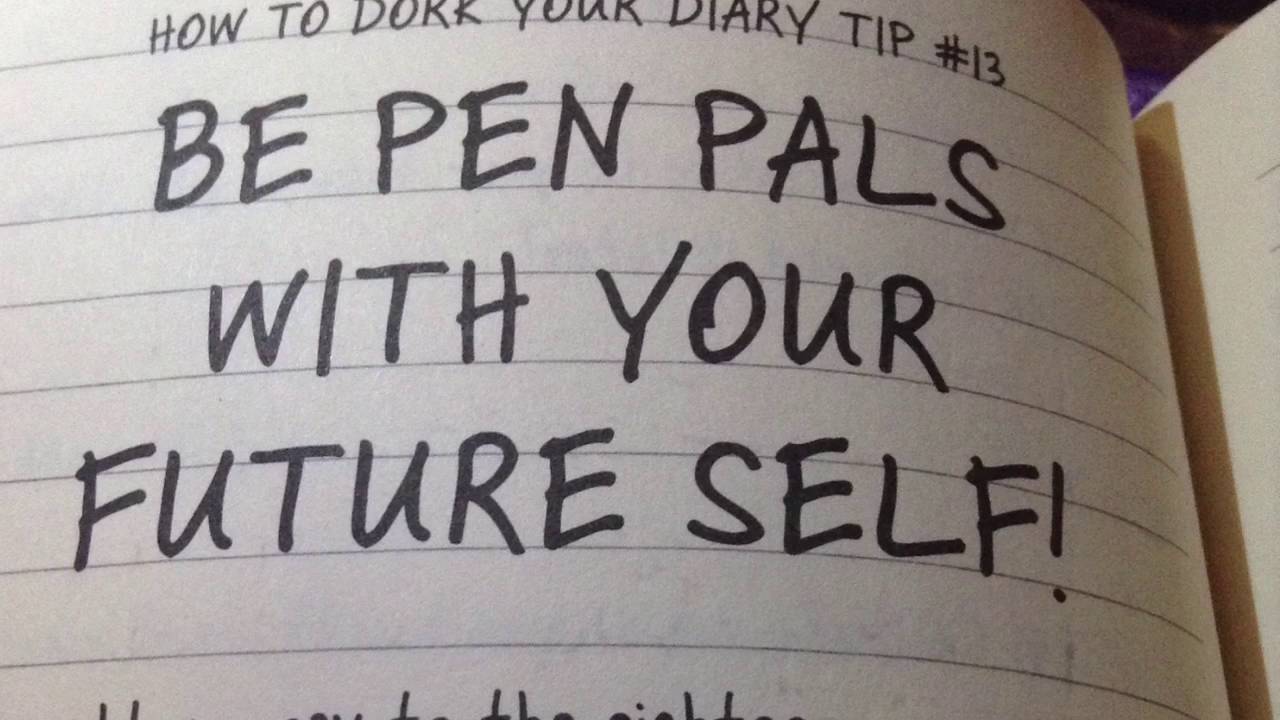 HOW TO DORK YOUR DIARY TIP #13
BE PEN PALS
WITH YOUR
FUTURE SELF!
to the